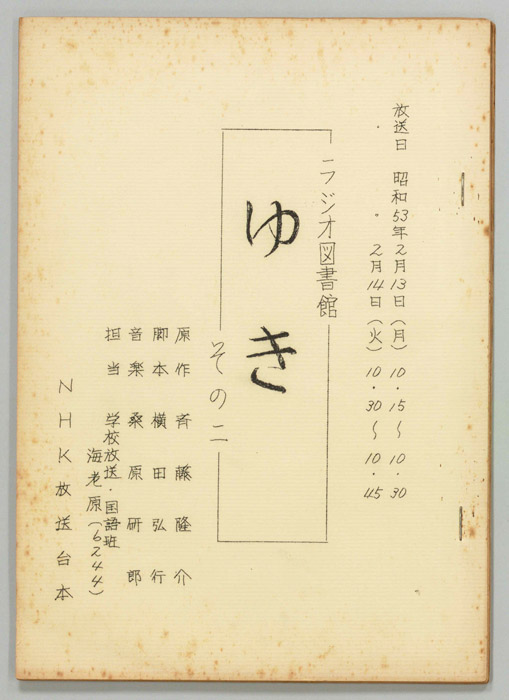 放送日　昭和53年2月13日（月）10・15〜10・30
〃　〃　2月14日（火）10・30〜10・45
ラジオ図書館
ゆき
その二
原作　斉藤隆介
脚本　横田弘行
音楽　桑原研郎
担当　学校放送・国語班
海老原（6244）
NHK放送台本